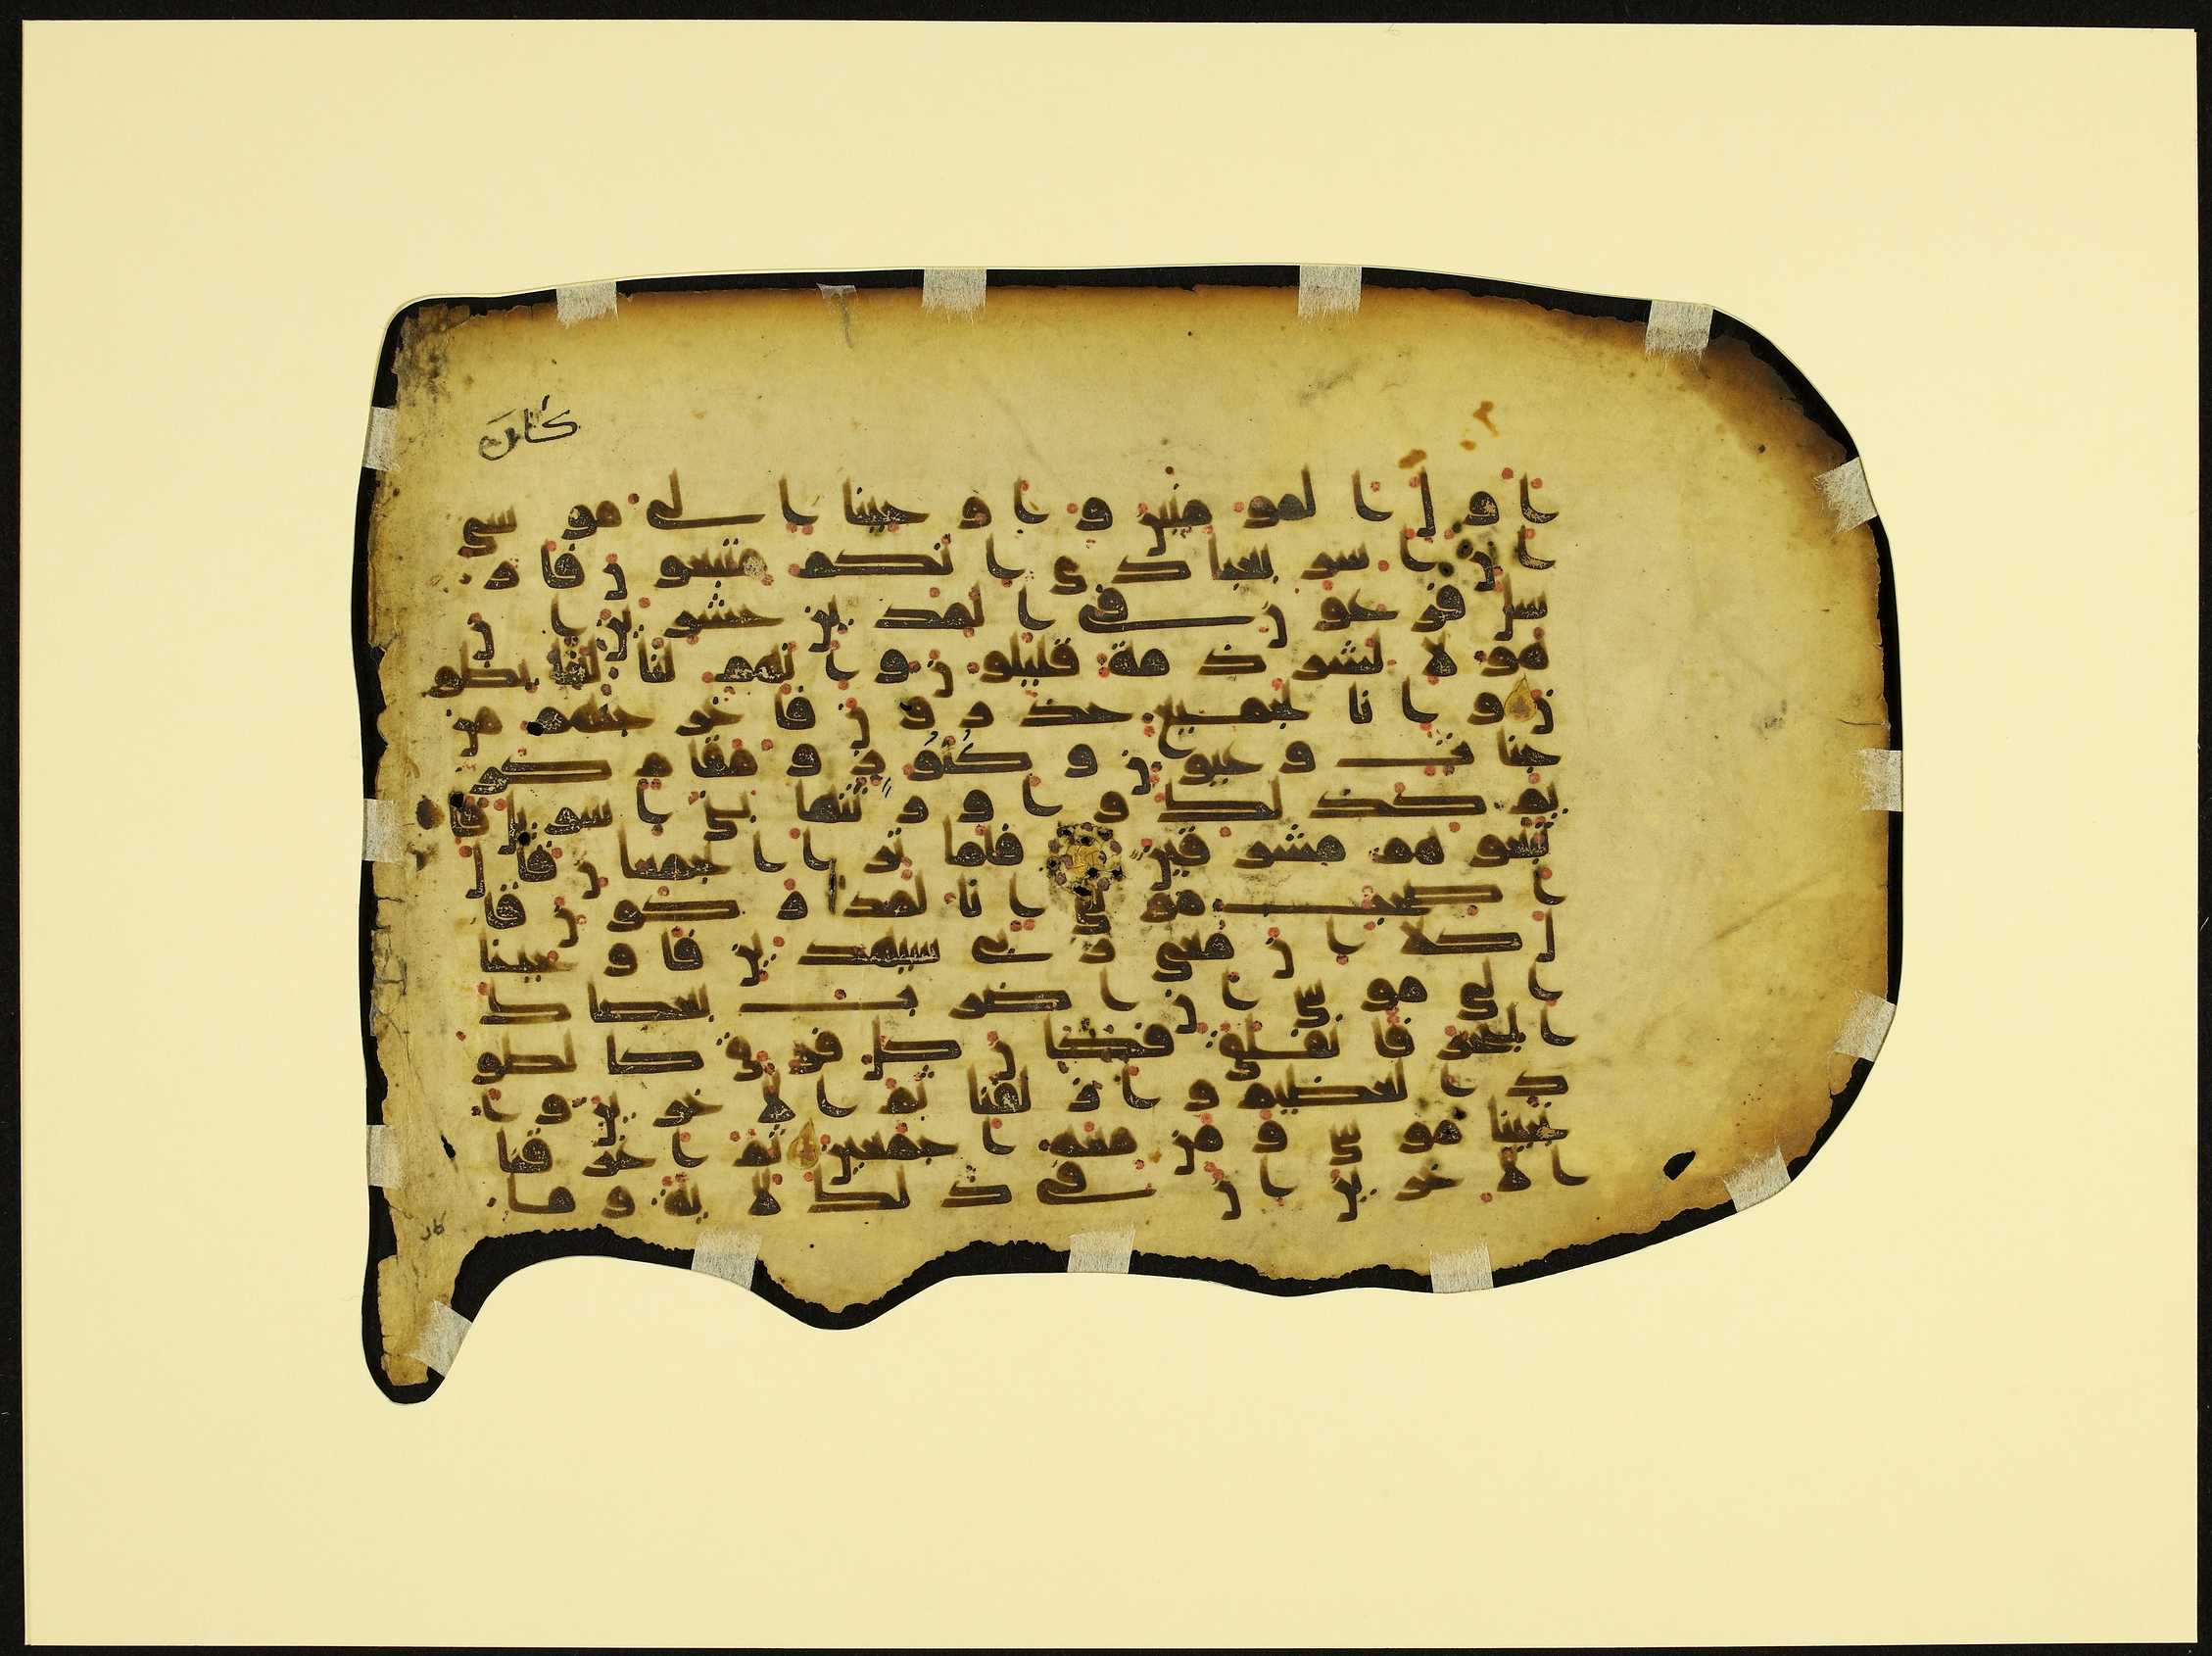 كان
اول المومنين واوحينا الى موسى
ان اسر بعبادي انكم متبعون فار
سل فرعون في المدين حشرين ان
هولا لشرذمة قليلون وانهم لنا لغايظو
ن وانا لجميع حذرون فاخرجنهم من
جنات وعيون وكنوز ومقام كر
يم كذلك واورثنها بني اسرايل فا
تبعوهم مشرقين فلما ترا الجمعان قال
اصحب موسى انا لمدركون قا
ل كلا ان معي ربي سيهدين فاوحينا
الى موسى ان اضرب بعصاك
البحر فانفلق فكان كل فرق كالطو
د العظيم وازلفنا ثم الاخرين وا
نجينا موسى ومن معه اجمعين ثم اغرقنا
الاخرين ان في ذلك لاية وما